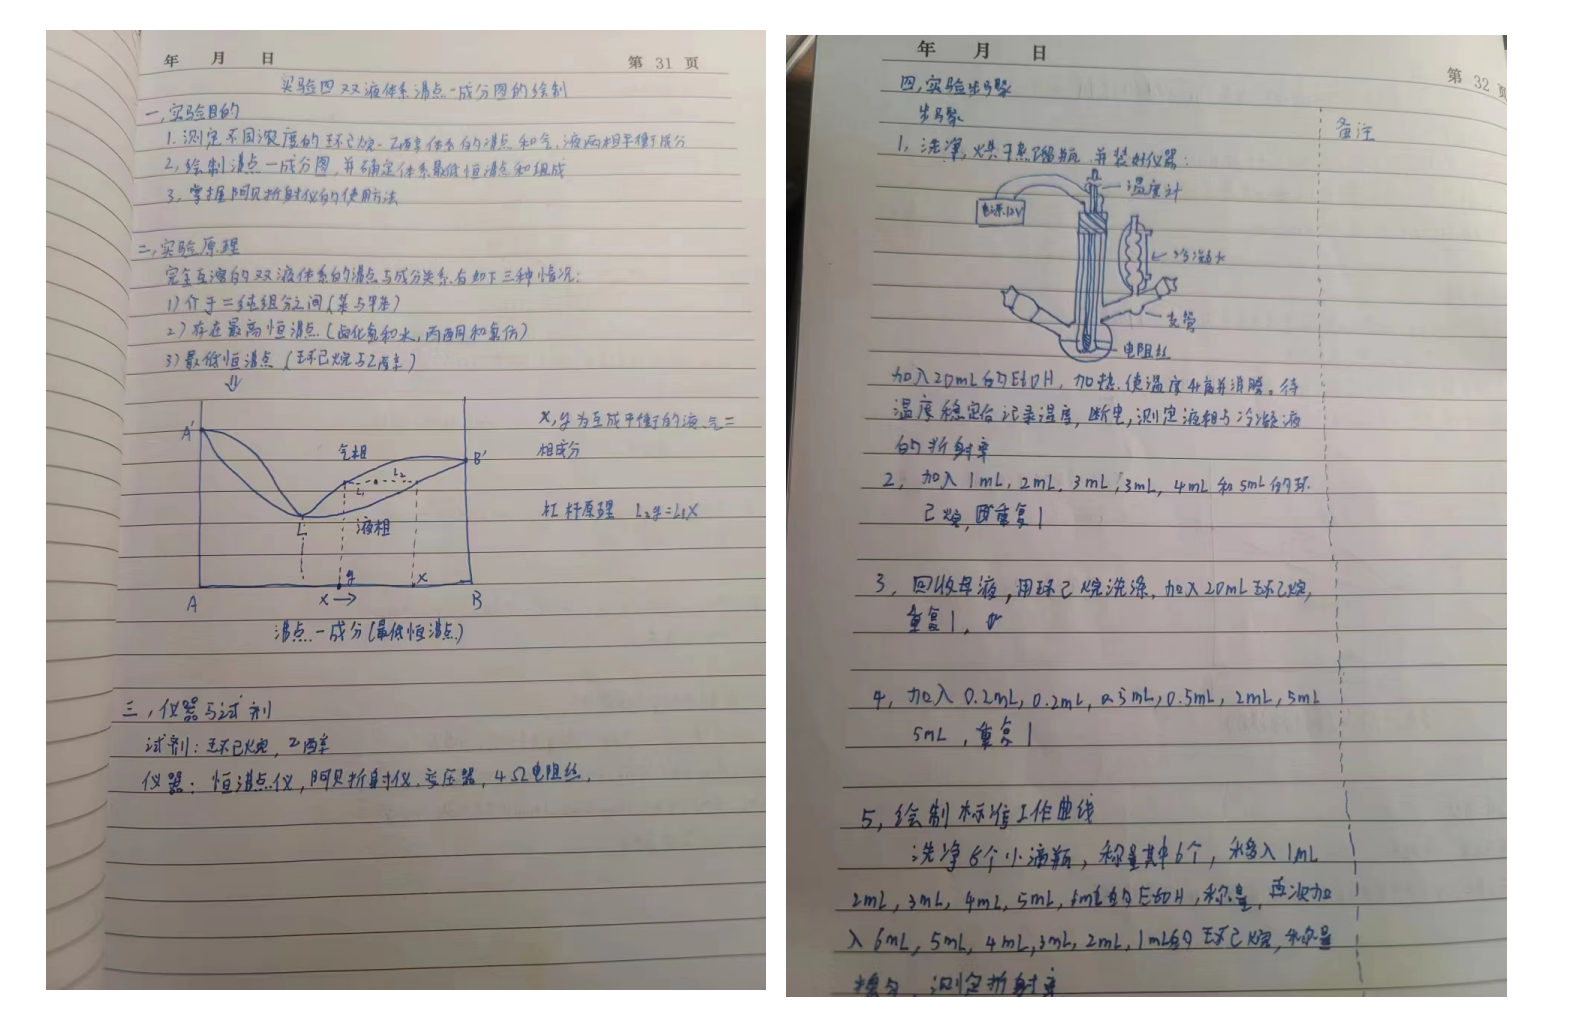 年 月 日
第 31 页
实验四 双液体系沸点-成分图的绘制
一,实验目的
1. 测定不同浓度的环己烷-乙醇体系的沸点和气,液两相平衡成分
2, 绘制沸点-成分图,并确定体系最低恒沸点和组成
3, 掌握阿贝折射仪的使用方法
二,实验原理
完全互溶的双液体系的沸点与成分关系有如下三种情况:
1) 介于二纯组分之间(苯与甲苯)
2) 存在最高恒沸点(卤化氢和水,丙酮和氯仿)
3) 最低恒沸点(环己烷与乙醇)
A'
气相
L₁
L₂
B'
L
液相
y
x
A
x→
B
x,y为互成平衡的液、气二
相成分
杠杆原理 L₂y=L₁x
沸点-成分(最低恒沸点)
三,仪器与试剂
试剂:环己烷,乙醇
仪器:恒沸点仪,阿贝折射仪,变压器,4Ω电阻丝.
年 月 日
第 32 页
四,实验步骤
步骤
备注
1, 洗净,烘干蒸馏瓶,并装好仪器:
温度计
电源12V
冷凝水
支管
电阻丝
加入20mL的EtOH,加热,使温度升高并沸腾。待
温度稳定后记录温度,断电,测定液相与冷凝液
的折射率
2, 加入1mL,2mL,3mL,3mL,4mL和5mL的环
己烷,重复1
3, 回收母液,用环己烷洗涤,加入20mL环己烷,
重复1,
4, 加入0.2mL,0.2mL,0.5mL,0.5mL,2mL,5mL
5mL,重复1
5, 绘制标准工作曲线
洗净 个小滴瓶,称量其中6个,移入1mL
2mL,3mL,4mL,5mL,6mL的EtOH,称量,再次加
入6mL,5mL,4mL,3mL,2mL,1mL的环己烷,称量
摇匀,测定折射率